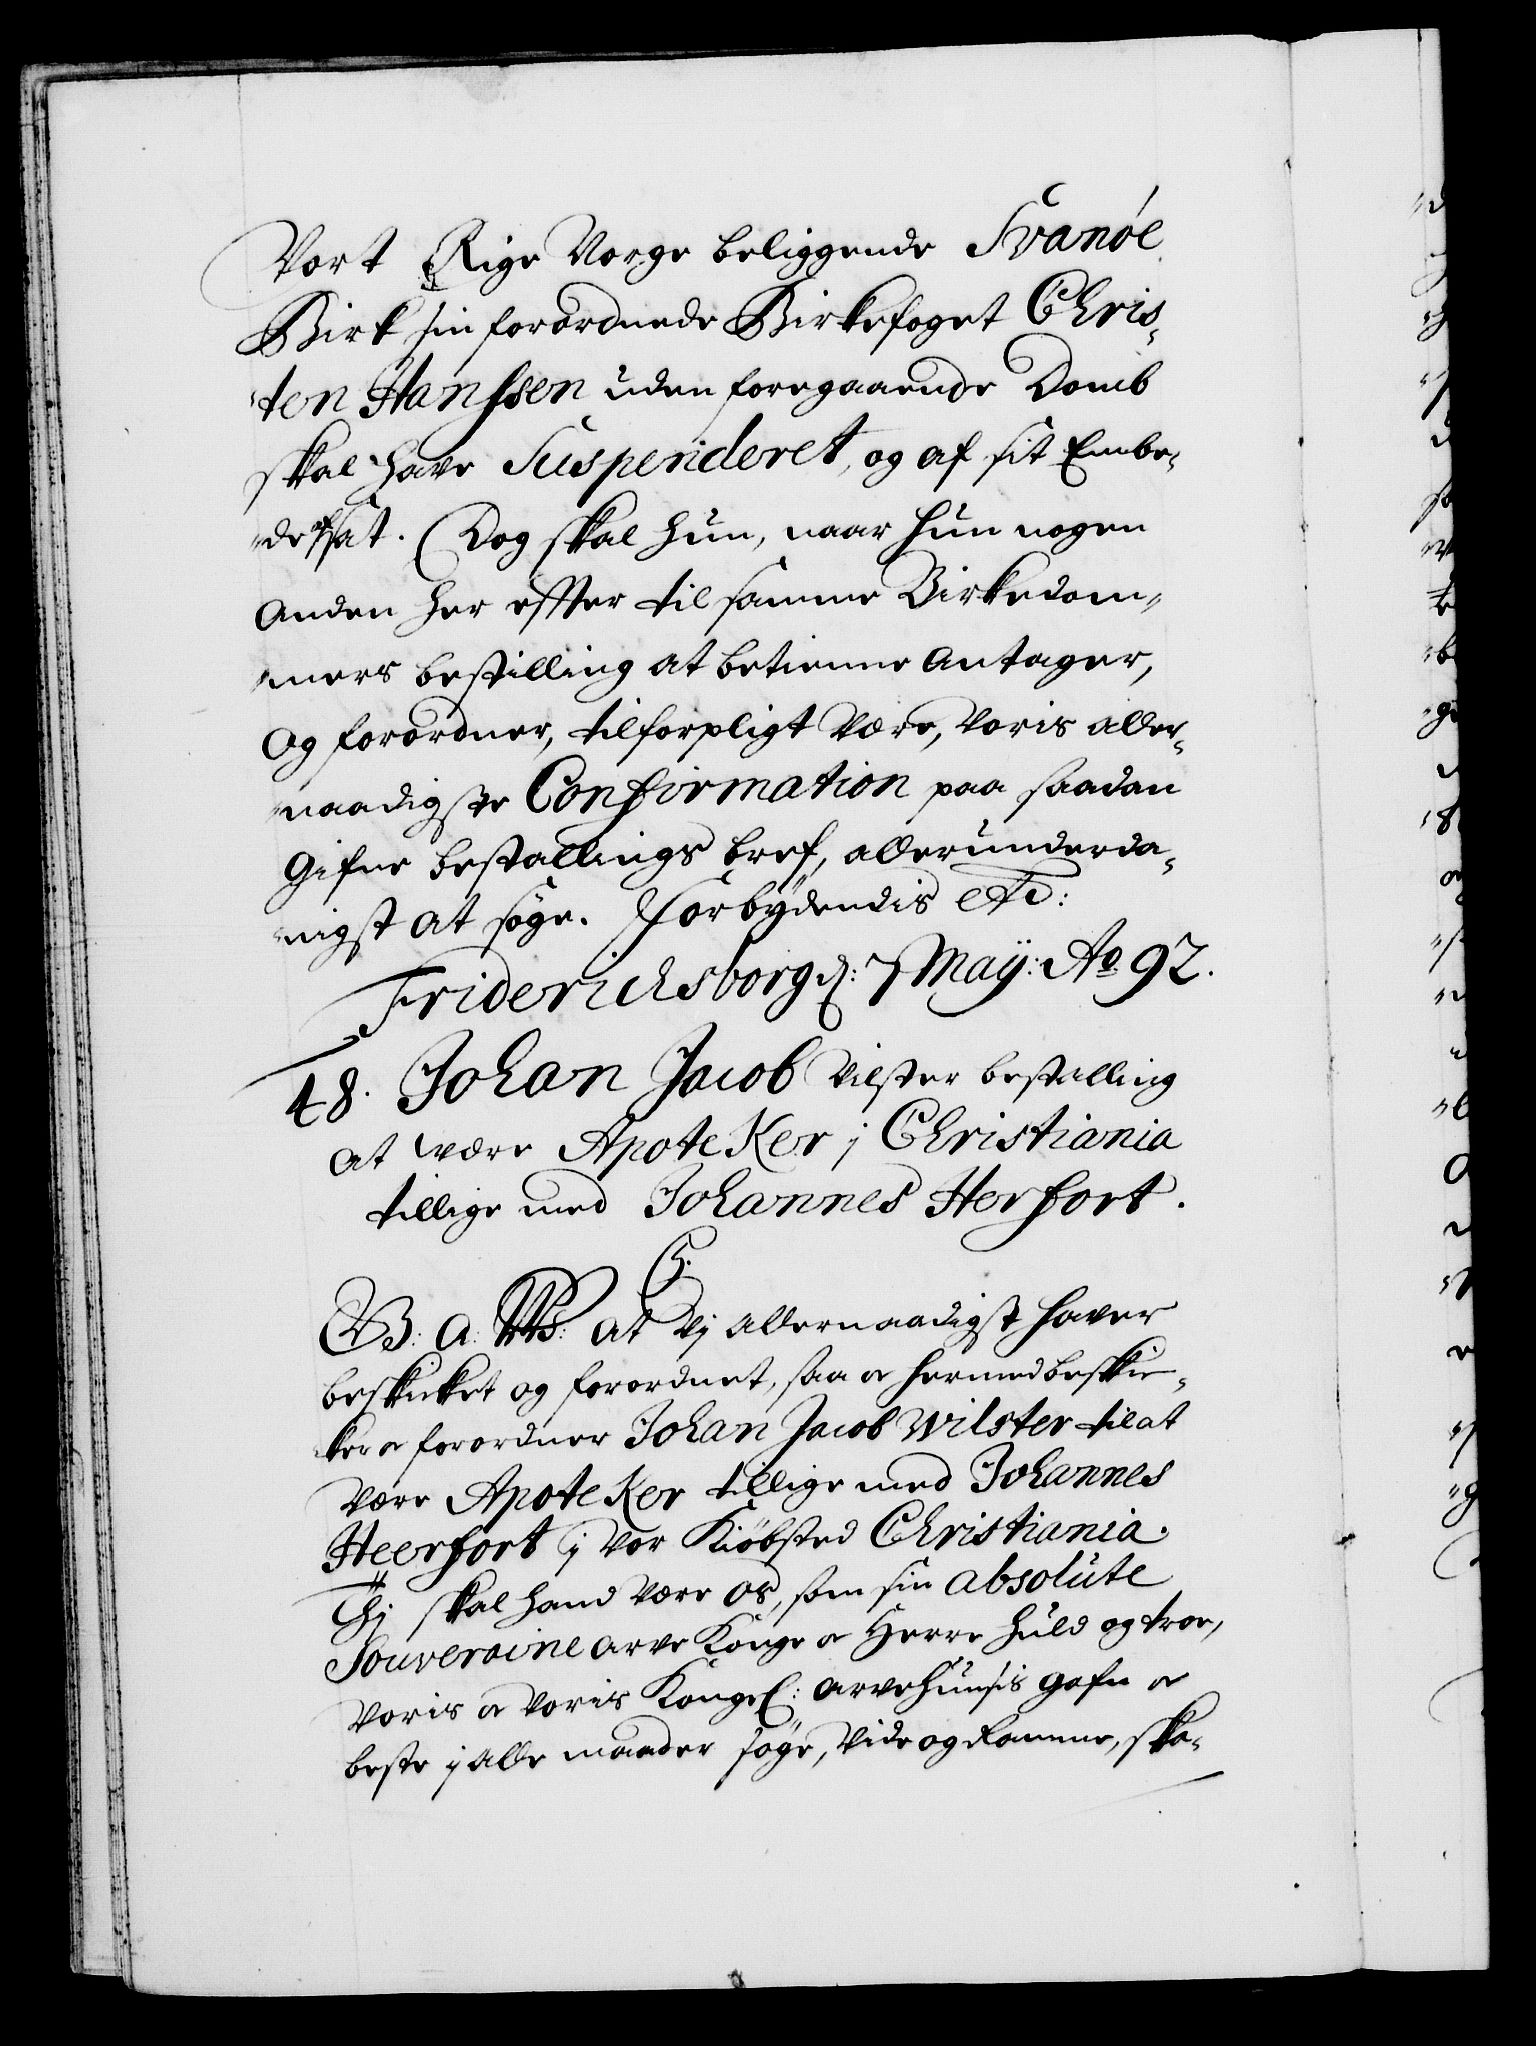 Vort Rige Norge beliggende Svanøe
Birk sin forordnede Birkefoget Chris-
ten Hanssen uden foregaaende Domb
skal have Suspenderet, og af sit Embe-
de afsat. Dog skal hun, naar hun nogen
Anden her effter til samme Birkedom-
mers bestilling at betienne Antager,
Og forordner, tilforpligt være, Voris aller-
naadigste Confirmation paa saadan
Gifne bestallings bref, allerunderda-
nigst at søge. Forbydendis etc:
Friderichsborg d: 7 Maÿ: Ao. 92.
48. Johan Jacob Vilster bestalling
at være Apoteker j Christiania
tillige med Johannes Herfort.
C5.
G: A: W: at Vj allernaadigst hafver
beskicket og forordnet, saa og hermed beskic-
ker og forordner Johan Jacob Wilster til at
Være Apoteker tillige med Johannes
Heerfort j vor Kiøbsted Christiania.
Thj skal hand være os, som sin absolute
Souveraine arve Konge og Herre huld og troe,
Voris og voris Kongel: arvehuusis gafn og
beste j alle maader søge, Vide og ramme, ska-